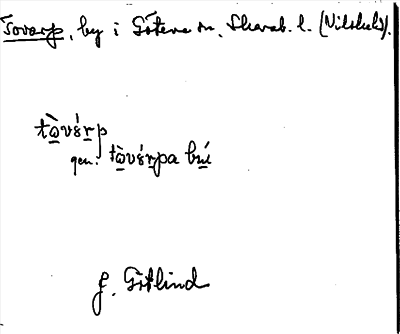 Tovarp, by i Götene sn, Skarab. l. (Nilskuld).
tòvárp
gen. tòvárpa bùi
J. Götlind